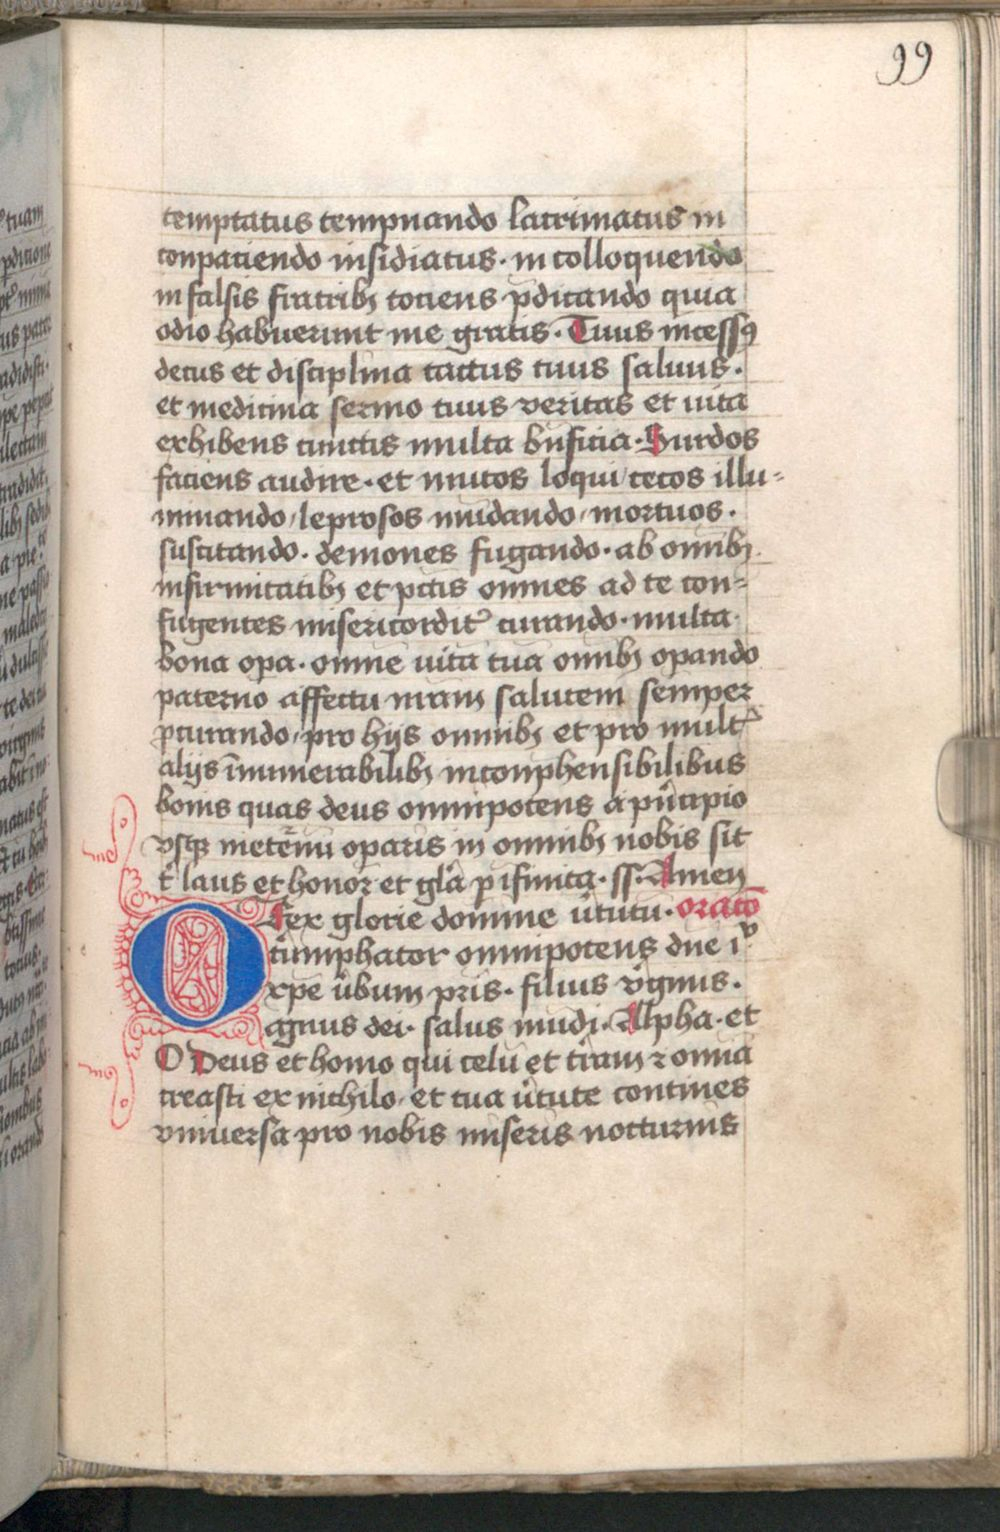 99
temptatus tempnando lacrimatus in
conpaciendo insidiatus · in colloquendo
in falsis fratribꝫ tociens p̄dicando quia
odio habuerunt me gratis · Tuus incessꝯ
decus et disciplina tactus tuus saluus ·
et medicina sermo tuus veritas et uita
exhibens cunctis multa bn̄ficia · Surdos
faciens audire · et mutos loqui / cecos illu-
minando / leprosos mūdando / mortuos ·
suscitando · demones fugando · ab omībꝫ
infirmitatibꝫ et pctīs omnes ad te con-
fugentes misericordit̉ curando · multa ·
bona oꝑa · omne uita tua omībꝫ oꝑando
paterno affectu nr̄am salutem semper
ꝓcurando / pro hijs omnibꝫ et pro mult̉
alijs īnumerabilibꝫ inconphensibilibus
bonis quas deus omnipotens a pͥncipio
vsqꝫ inet̉nū oparis in omnibꝫ nobis sit
t̉ laus et honor et glā ꝑ īfinita · ss · Amen
O Rex glorie domine ūtutū · oracō
triūmphator omnipotens dn̄e iͧ
xpē ūbum pr̄is · filius v̉ginis ·
agnus dei · salus mūdi · Alpha · et
O Deus et homo qui celū et t̉ram ⁊ omnia
creasti ex nichilo · et tua ūtute contines
vniuersa pro nobis miseris nocturnis